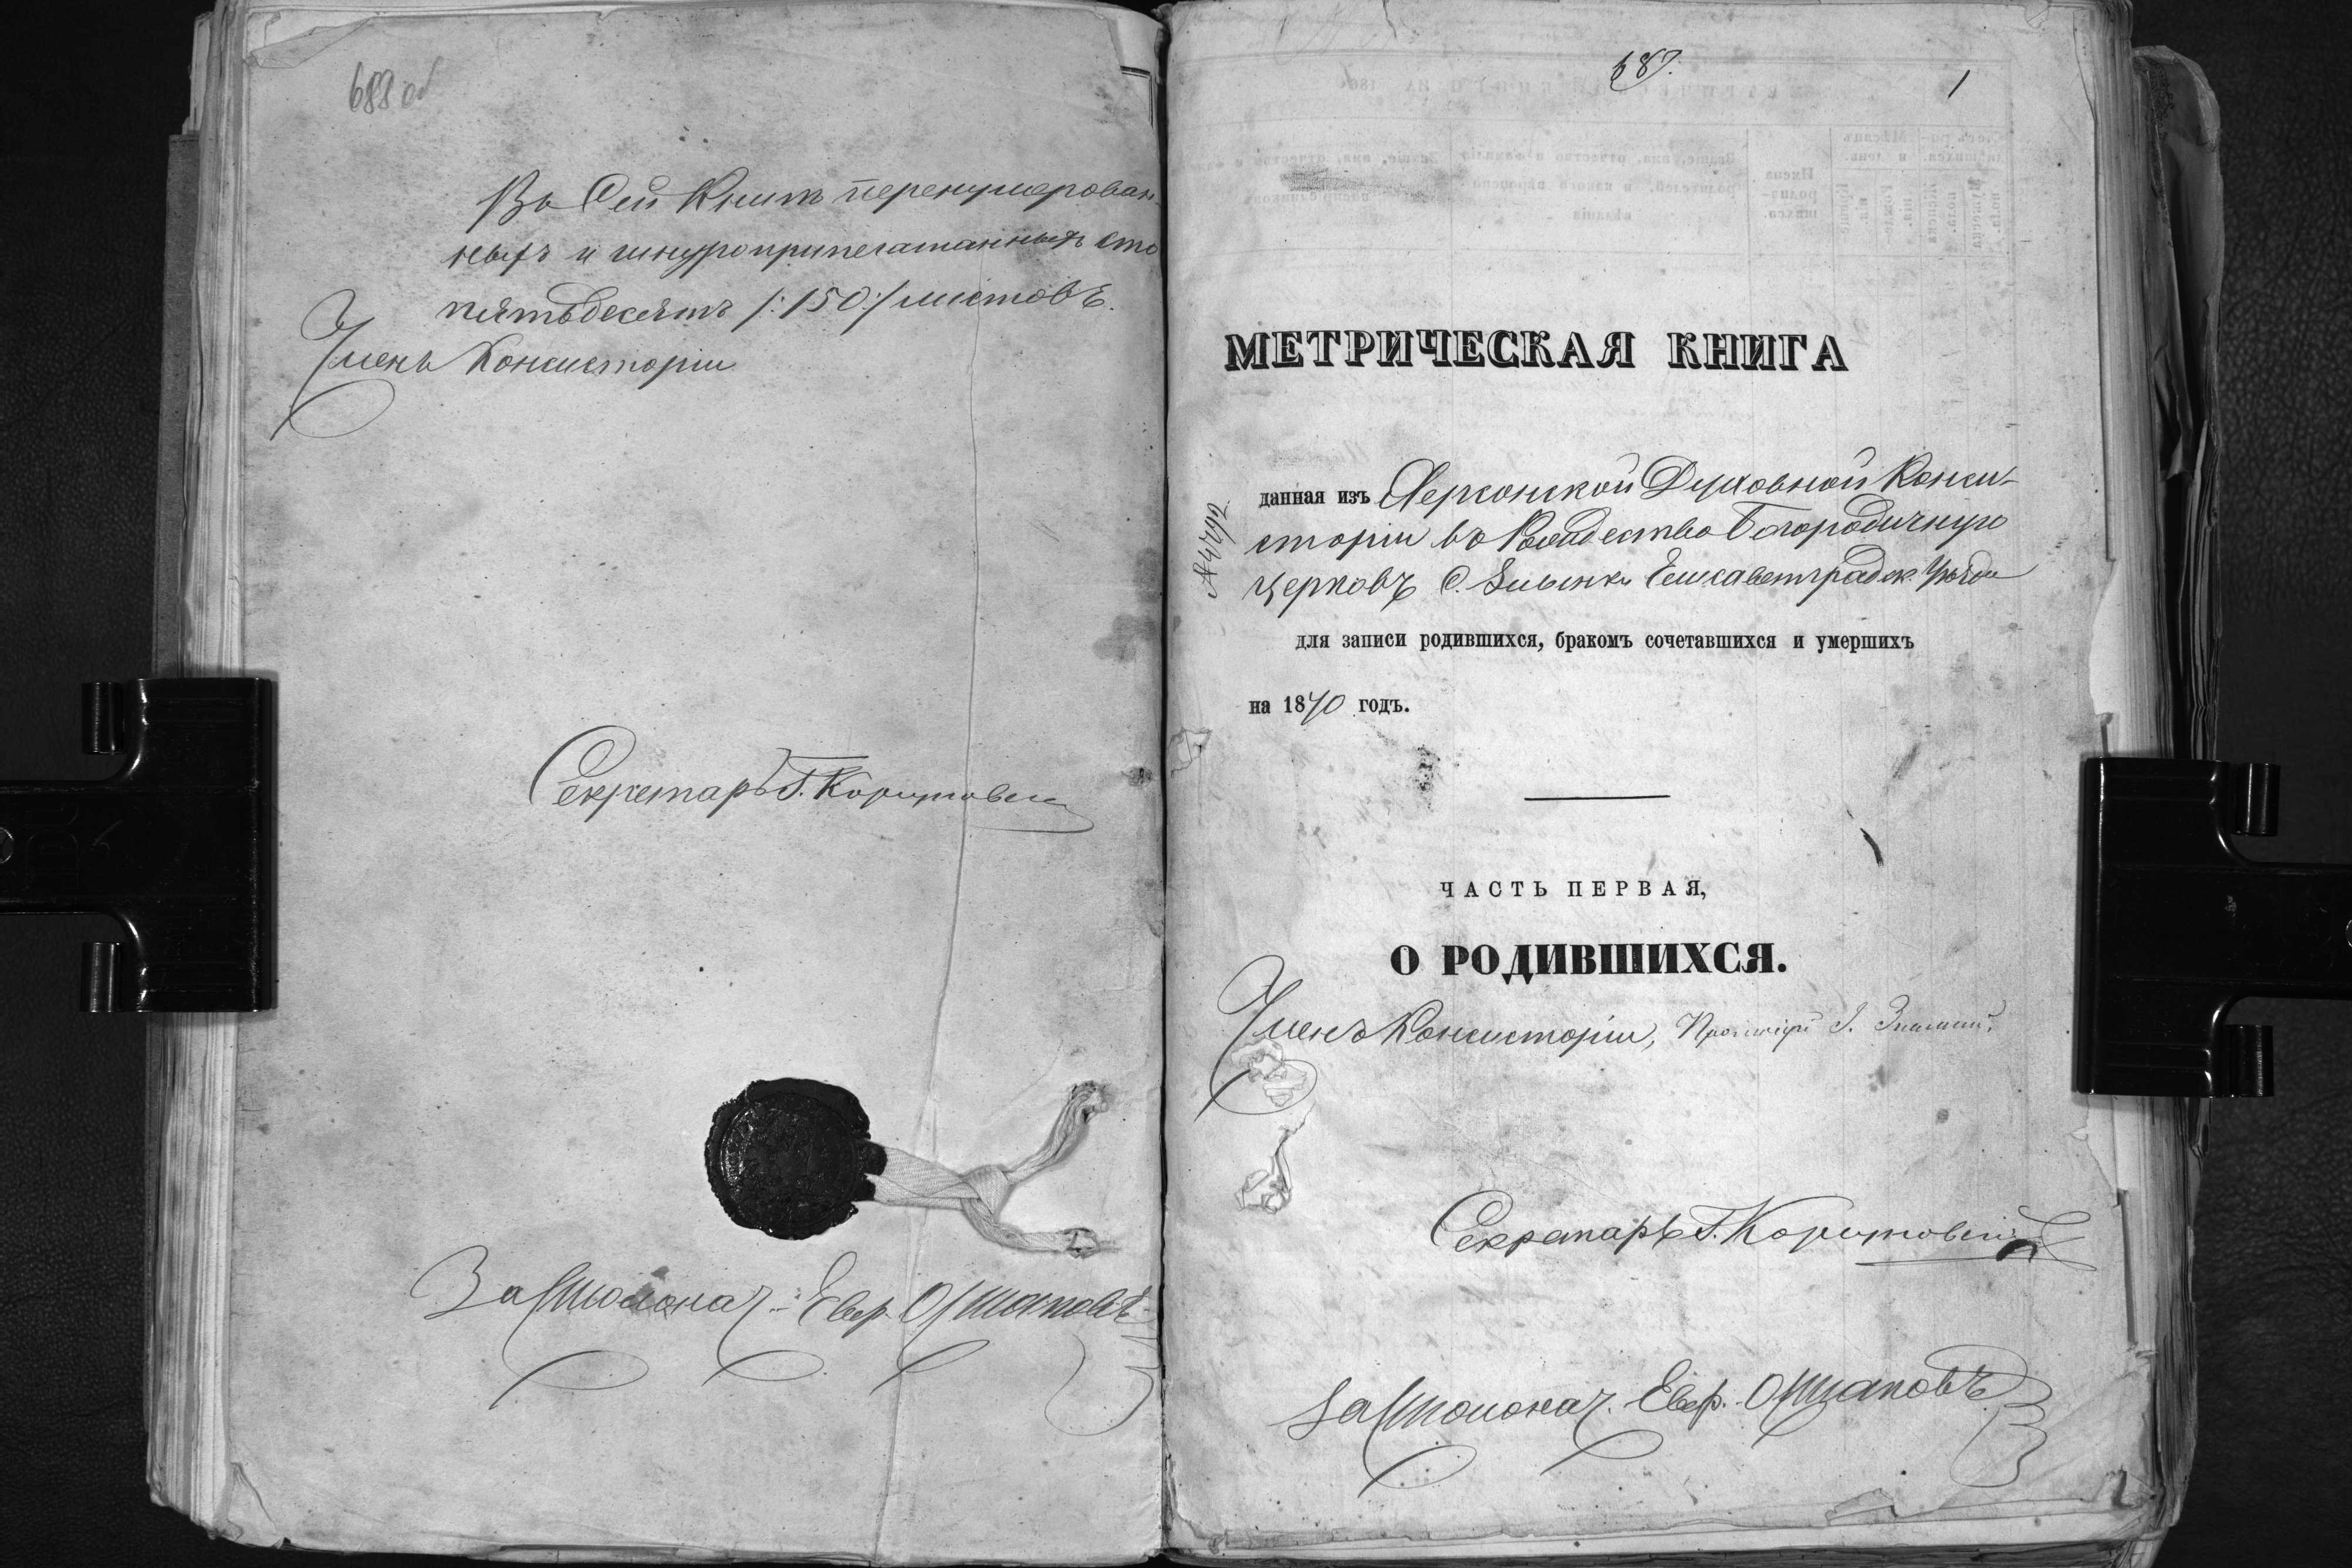 688 об
Въ Сей Книгѣ перенумерован-
ныхъ и шнуроприпечатанныхъ сто
пятьдесятъ /:150:/ листовъ.
Членъ Консисторіи
Секретарь Г.
За Столонач. Евф.
687.
1
МЕТРИЧЕСКАЯ КНИГА
данная изъ Херсонской Духовной Конси-
сторіи въ Рождество Богородичную
церковь С. Злынки Елисаветградск. Уѣзда
№ 4792
для записи родившихся, бракомъ сочетавшихся и умершихъ
на 1870 годъ.
ЧАСТЬ ПЕРВАЯ,
О РОДИВШИХСЯ.
Членъ Консисторіи, Протоіерей І.
Секретарь Г.
За Столонач. Евф.